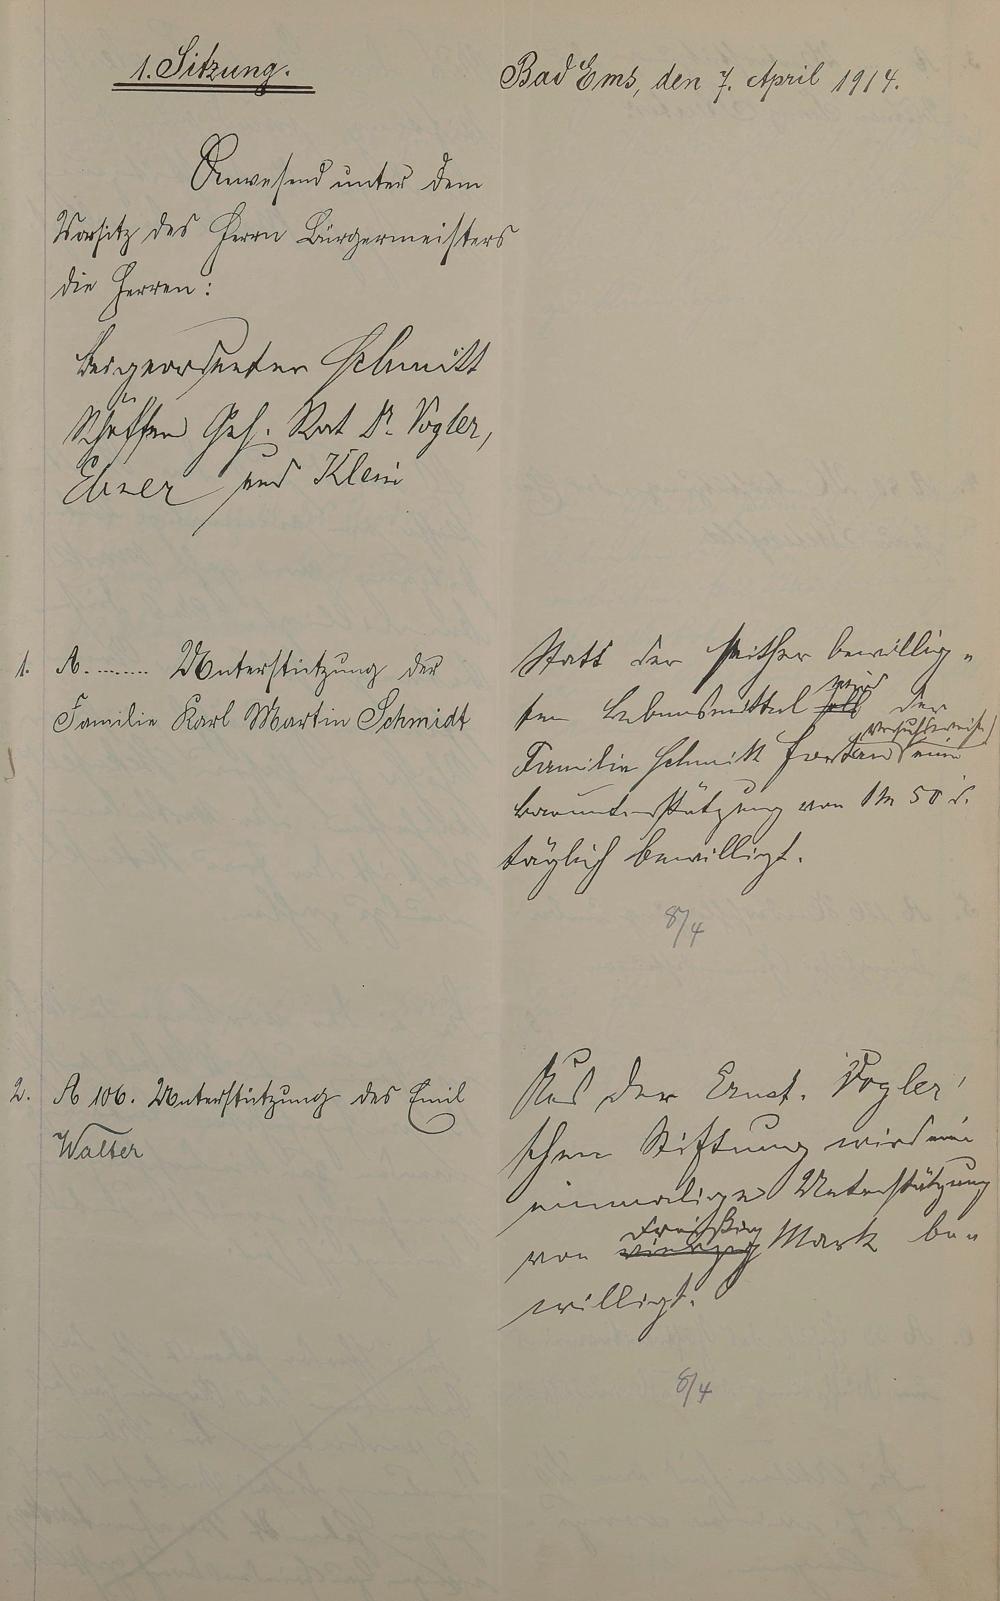 1. Sitzung.
Bad Ems, den 7. April 1914.
Anwesend unter dem
Vorsitz des Herrn Bürgermeisters
die Herren:
Beigeordneter Schmitt
Schöffen Geh. Rat Dr. Vogler,
Ebner und Klein
1. A......... Unterstützung der
Familie Karl Martin Schmidt
Statt der seither bewillig-
ten Lebensmittel soll wird der
Familie Schmitt fortan (versuchsweise) eine
Barunterstützung von 1 M 50 d.
täglich bewilligt.
8/4
2. A 106. Unterstützung des Emil
Walter
Aus der Ernst. Vogler'
schen Stiftung wird eine
einmalige Unterstützung
von vierzig dreißig Mark be-
willigt.
8/4